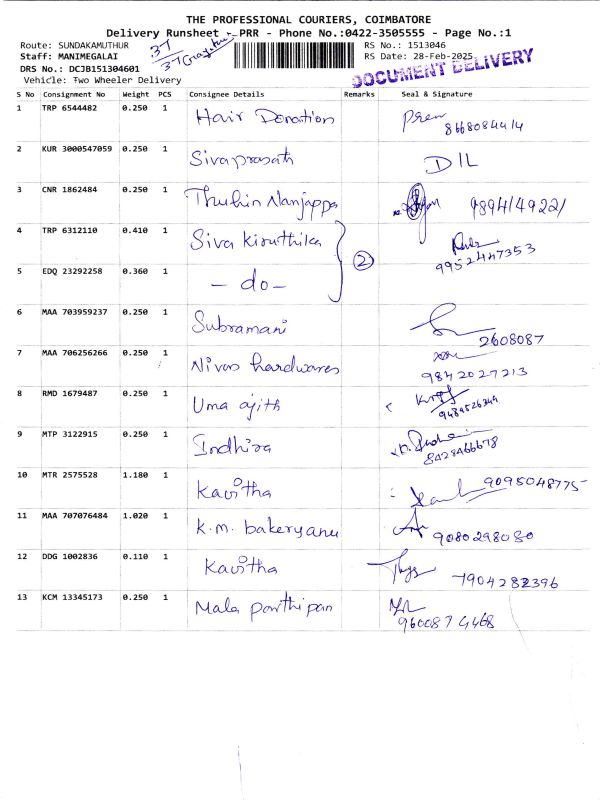 THE PROFESSIONAL COURIERS, COIMBATORE
Delivery Runsheet - PRR - Phone No.:0422-3505555 - Page No.:1
Route: SUNDAKAMUTHUR
37
RS No.: 1513046
Staff: MANIMEGALAI
37
RS Date: 28-Feb-2025
DRS No.: DCJB151304601
DOCUMENT DELIVERY
Vehicle: Two Wheeler Delivery
S No Consignment No Weight PCS Consignee Details Remarks Seal & Signature
1 TRP 6544482 0.250 1 Hair Donation Prem
8668084414
2 KUR 3000547059 0.250 1 Sivaprasath DIL
3 CNR 1862484 0.250 1 Thuhin Nanjappa 9894149221
4 TRP 6312110 0.410 1 Siva Kiruthika
2 9952447353
5 EDQ 23292258 0.360 1 - do -
6 MAA 703959237 0.250 1 Subramani
2608087
7 MAA 706256266 0.250 1 Nivas hardwares
9842027213
8 RMD 1679487 0.250 1 Uma ajith
9489526349
9 MTP 3122915 0.250 1 Indhira
8428466678
10 MTR 2575528 1.180 1 Kavitha 9095048775
11 MAA 707076484 1.020 1 K.M. bakeryanu 9080298080
12 DDG 1002836 0.110 1 Kavitha 7904282396
13 KCM 13345173 0.250 1 Mala parthipan
9600874468